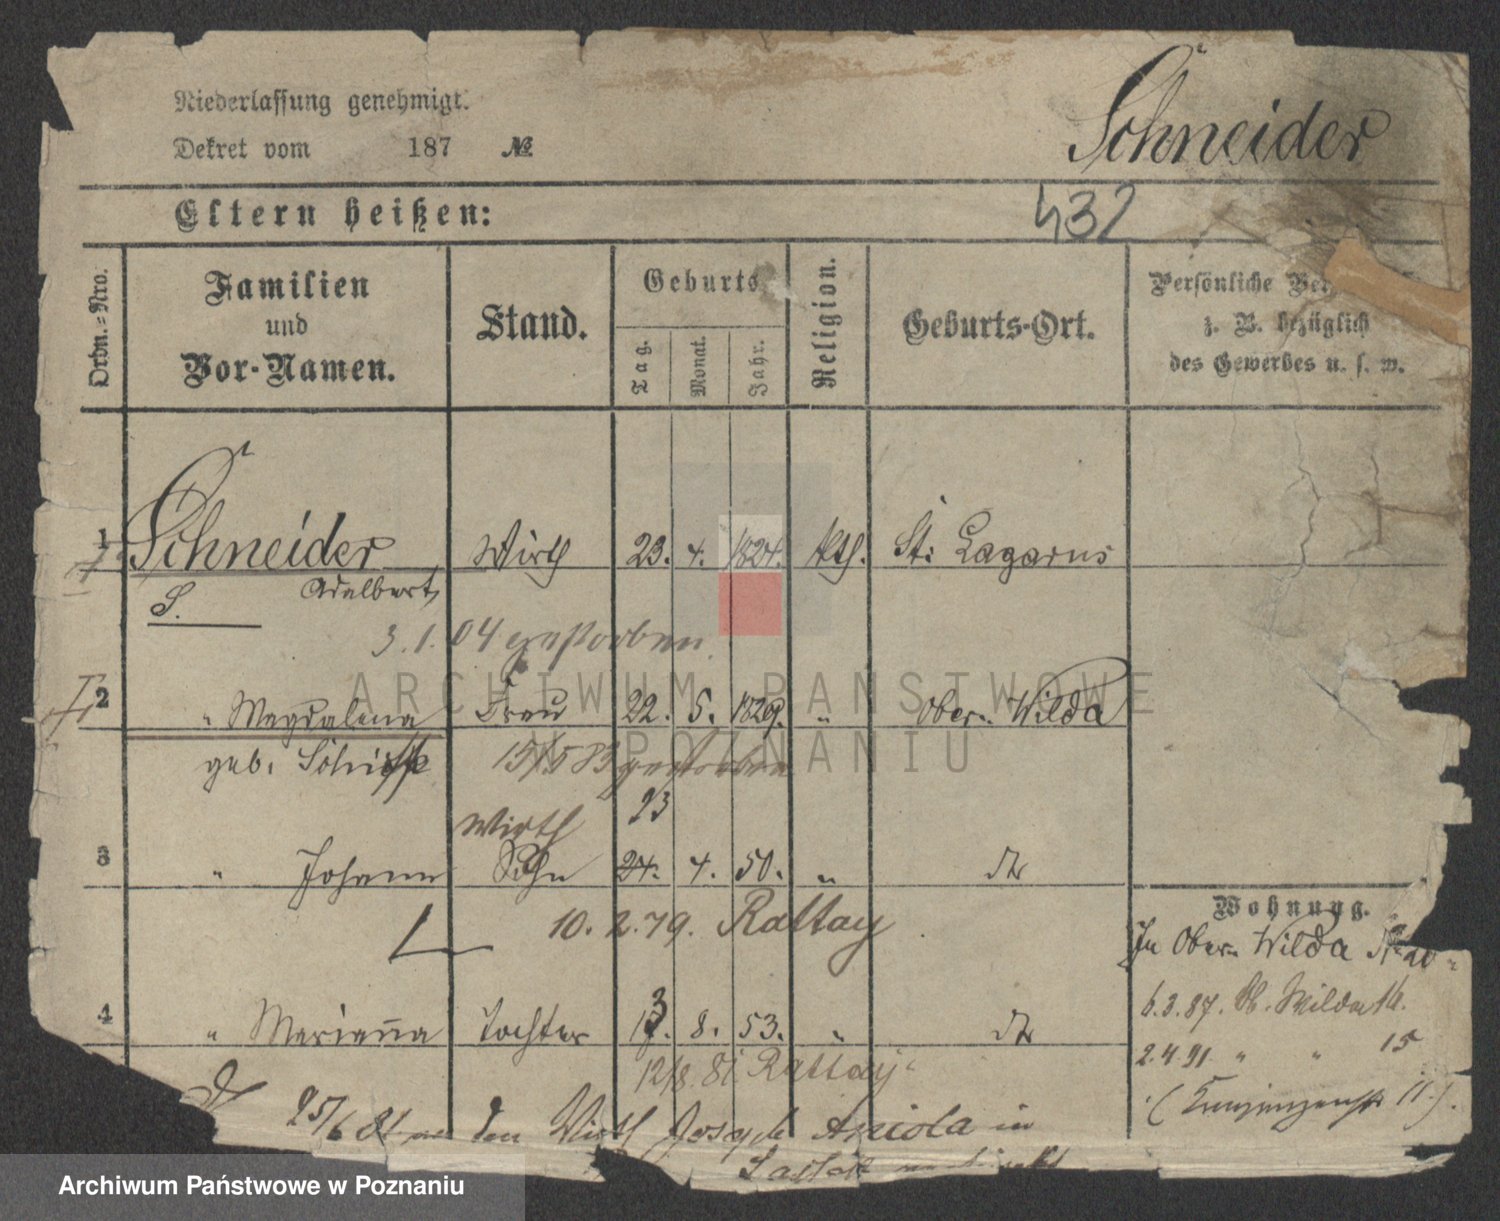 Niederlassung genehmigt.
Dekret vom 187 №
Schneider
Eltern heißen:
432
Ordn.-Nro.
Familien und Vor-Namen.
Stand.
Geburts
Tag.
Monat.
Jahr.
Religion.
Geburts-Ort.
Persönliche
z. B. bezüglich
des Gewerbes u. s. w.
1 Schneider Wirth 23. 4. 1824. kth. St: Lazarus
Adalbert
S.
3.1.04 gestorben.
2 " Magdalena Frau 22. 5. 1829. " Ober-Wilda
geb. 15/5 83 gestorben
Wirth 23
3 " Johann Sohn 24. 4. 50. " dto
10. 2. 79. Rattay
4 " Marianna Tochter 13. 8. 53. " dto
12/8. 81. Rattay
25/6 81 den Wirth Joseph Aniola in
Wohnung.
In Ober-Wilda
6.3.87. Ob. Wilda 16.
2.4.91 " " 15
ARCHIWUM PAŃSTWOWE
W POZNANIU
Archiwum Państwowe w Poznaniu